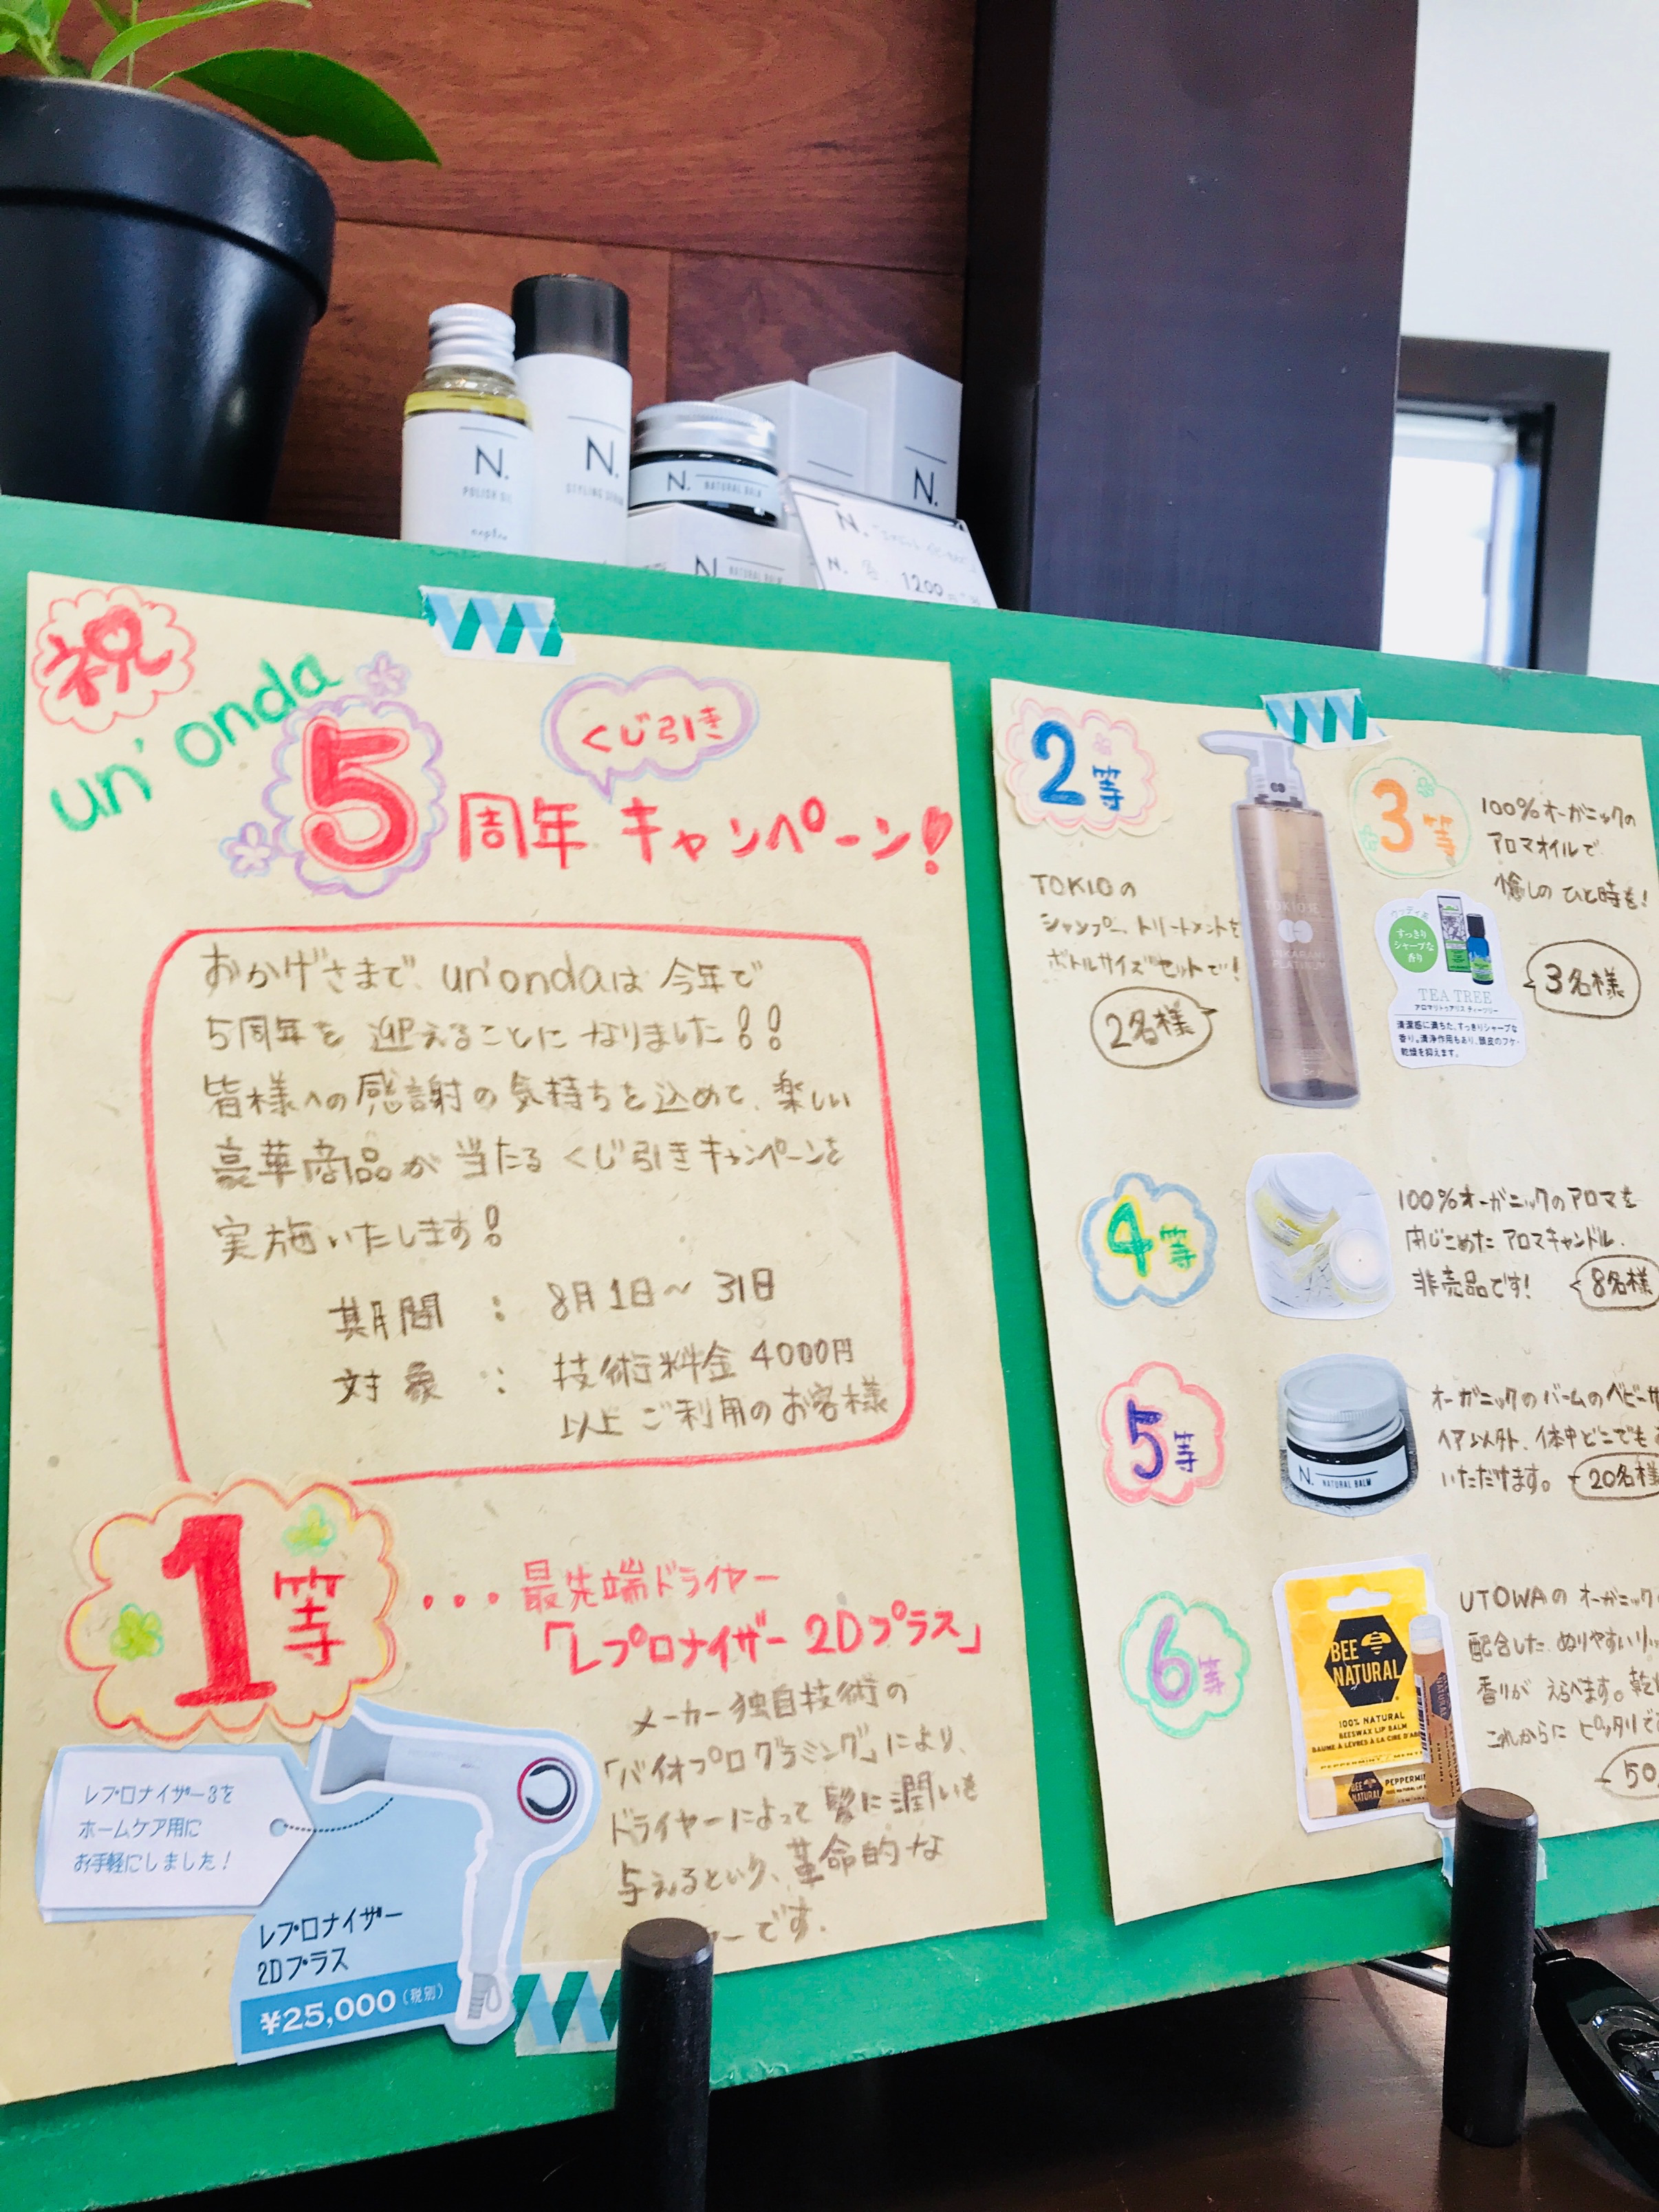 N.
POLISH OIL
napla
N.
STYLING SERUM
N. NATURAL BALM
N. NATURAL BALM
N.
N.
N.
1200
祝
un'onda
くじ引き
5周年 キャンペーン!
おかげさまで、un'ondaは今年で
5周年を迎えることになりました!!
皆様への感謝の気持ちを込めて、楽しい
豪華商品が当たるくじ引きキャンペーンを
実施いたします!
期間 : 8月1日~31日
対象 : 技術料金4000円
以上ご利用のお客様
1等
・・・最先端ドライヤー
「レプロナイザー 2Dプラス」
メーカー独自技術の
「バイオプログラミング」により、
ドライヤーによって髪に潤いを
与えるという、革命的な
ーです.
レプロナイザー3を
ホームケア用に
お手軽にしました!
レプロナイザー
2Dプラス
¥25,000(税別)
2等
TOKIOの
シャンプー、トリートメントを
ボトルサイズセットで!
2名様
TOKIO IE
INKARAMI
PLATINUM
3等
100%オーガニックの
アロマオイルで
癒しのひと時を!
3名様
すっきり
シャープな
香り
TEA TREE
アロマリトゥアリス ティーツリー
清潔感に満ちた、すっきりシャープな
香り。清浄作用もあり、頭皮のフケ・
乾燥を抑えます。
4等
100%オーガニックのアロマを
閉じこめたアロマキャンドル.
非売品です!
8名様
5等
N. NATURAL BALM
オーガニックのバームのベビーサ
ヘア以外、体中どこでもお
いただけます。
20名様
6等
BEE
NATURAL
100% NATURAL
BEESWAX LIP BALM
BAUME À LÈVRES À LA CIRE D'AB
PEPPERMINT / MENT
BEE
NATURAL
PEPPERMIN
UTOWAの オーガニック
配合した、ぬりやすいリッ
香りが えらべます。乾
これからに ピッタリで
50